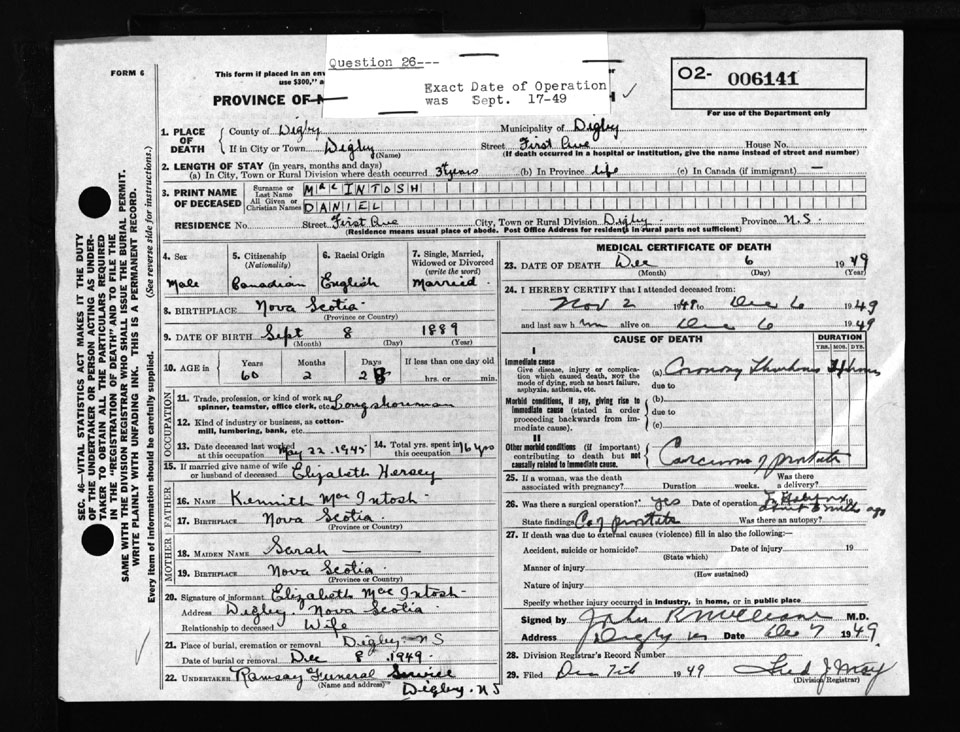 Question 26---
Exact Date of Operation
was Sept. 17-49
FORM 6
This form if placed in an env
use $300," a
PROVINCE OF N
O2- 006141
For use of the Department only
1. PLACE OF DEATH
County of Digby Municipality of Digby
If in City or Town Digby (Name) Street First Ave House No.
(If death occurred in a hospital or institution, give the name instead of street and number)
2. LENGTH OF STAY (in years, months and days)
(a) In City, Town or Rural Division where death occurred years (b) In Province life (c) In Canada (if immigrant) —
3. PRINT NAME OF DECEASED
Surname or Last Name MacINTOSH
All Given or Christian Names DANIEL
RESIDENCE No. Street First Ave City, Town or Rural Division Digby Province N.S.
(Residence means usual place of abode. Post Office Address for residents in rural parts not sufficient)
4. Sex Male
5. Citizenship (Nationality) Canadian
6. Racial Origin English
7. Single, Married, Widowed or Divorced (write the word) Married
8. BIRTHPLACE Nova Scotia
(Province or Country)
9. DATE OF BIRTH Sept 8 1889
(Month) (Day) (Year)
10. AGE in Years 60 Months 2 Days If less than one day old hrs. or min.
OCCUPATION
11. Trade, profession, or kind of work as spinner, teamster, office clerk, etc. Longshoreman
12. Kind of industry or business, as cotton-mill, lumbering, bank, etc.
13. Date deceased last worked at this occupation May 22, 1945 14. Total yrs. spent in this occupation 16 yrs
15. If married give name of wife or husband of deceased Elizabeth Hersey
FATHER
16. NAME Kennith MacIntosh
17. BIRTHPLACE Nova Scotia
(Province or Country)
MOTHER
18. MAIDEN NAME Sarah ———
19. BIRTHPLACE Nova Scotia
(Province or Country)
20. Signature of informant Elizabeth MacIntosh
Address Digby Nova Scotia
Relationship to deceased Wife
21. Place of burial, cremation or removal Digby N S
Date of burial or removal Dec 8 1949
22. UNDERTAKER Ramsay Funeral Service
(Name and address) Digby. N S
MEDICAL CERTIFICATE OF DEATH
23. DATE OF DEATH Dec 6 1949
(Month) (Day) (Year)
24. I HEREBY CERTIFY that I attended deceased from:
Nov 2 1948 to Dec 6 1949
and last saw him alive on Dec 6 1949
CAUSE OF DEATH
DURATION
YRS. MOS. DYS.
I
Immediate cause
Give disease, injury or complication which caused death, NOT the mode of dying, such as heart failure, asphyxia, asthenia, etc.
(a) Coronary Thrombosis hours
due to
Morbid conditions, if any, giving rise to immediate cause (stated in order proceeding backwards from immediate cause).
(b)
due to
(c)
II
Other morbid conditions (if important) contributing to death but not causally related to immediate cause.
Carcinoma of prostate
25. If a woman, was the death associated with pregnancy? Duration weeks. Was there a delivery?
26. Was there a surgical operation? yes Date of operation In Halifax about 3 months ago
State findings Ca of prostate Was there an autopsy?
27. If death was due to external causes (violence) fill in also the following:—
Accident, suicide or homicide? Date of injury 19
(State which)
Manner of injury
(How sustained)
Nature of injury
Specify whether injury occurred in industry, in home, or in public place
Signed by John R McCleave M.D.
Address Digby NS Date Dec 7 1949
28. Division Registrar's Record Number
29. Filed Dec 7th 1949 Fred J May
(Division Registrar)
SEC. 46—VITAL STATISTICS ACT MAKES IT THE DUTY
OF THE UNDERTAKER OR PERSON ACTING AS UNDER-
TAKER TO OBTAIN ALL THE PARTICULARS REQUIRED
IN THE "REGISTRATION OF DEATH" AND TO FILE THE
SAME WITH THE DIVISION REGISTRAR WHO SHALL ISSUE THE BURIAL PERMIT.
WRITE PLAINLY WITH UNFADING INK. THIS IS A PERMANENT RECORD.
Every item of information should be carefully supplied. (See reverse side for instructions.)